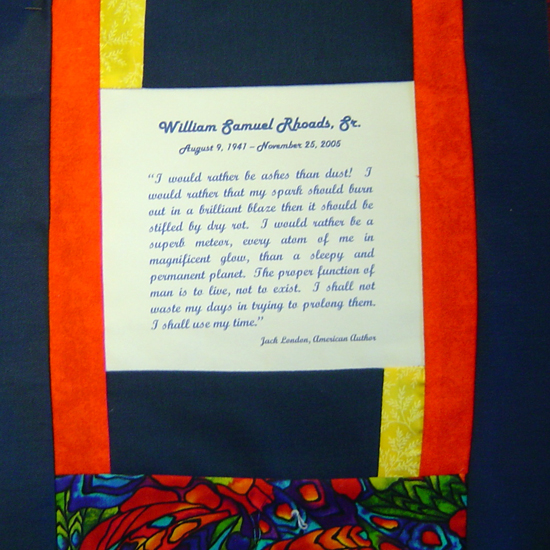 William Samuel Rhoads, Sr.
August 9, 1941 – November 25, 2005
“I would rather be ashes than dust! I
would rather that my spark should burn
out in a brilliant blaze then it should be
stifled by dry rot. I would rather be a
superb meteor, every atom of me in
magnificent glow, than a sleepy and
permanent planet. The proper function of
man is to live, not to exist. I shall not
waste my days in trying to prolong them.
I shall use my time.”
Jack London, American Author